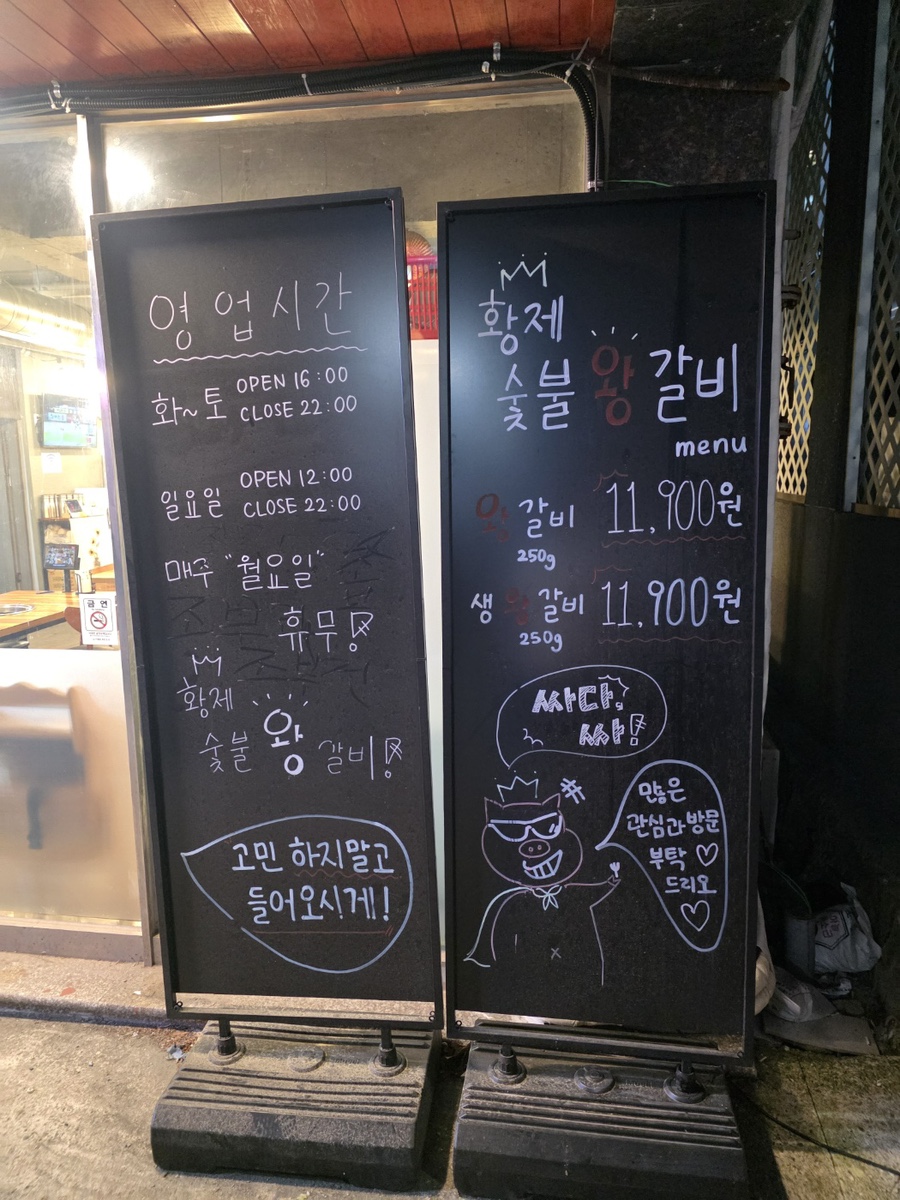 영업시간
화~토 OPEN 16:00
CLOSE 22:00
일요일 OPEN 12:00
CLOSE 22:00
매주 "월요일"
휴무!
황제
숯불 왕 갈비!
고민 하지말고
들어오시게!
황제
숯불 왕 갈비
menu
왕 갈비 11,900원
250g
생 왕 갈비 11,900원
250g
싸다,
싸!
많은
관심과 방문
부탁 ♡
드리오
♡
금연